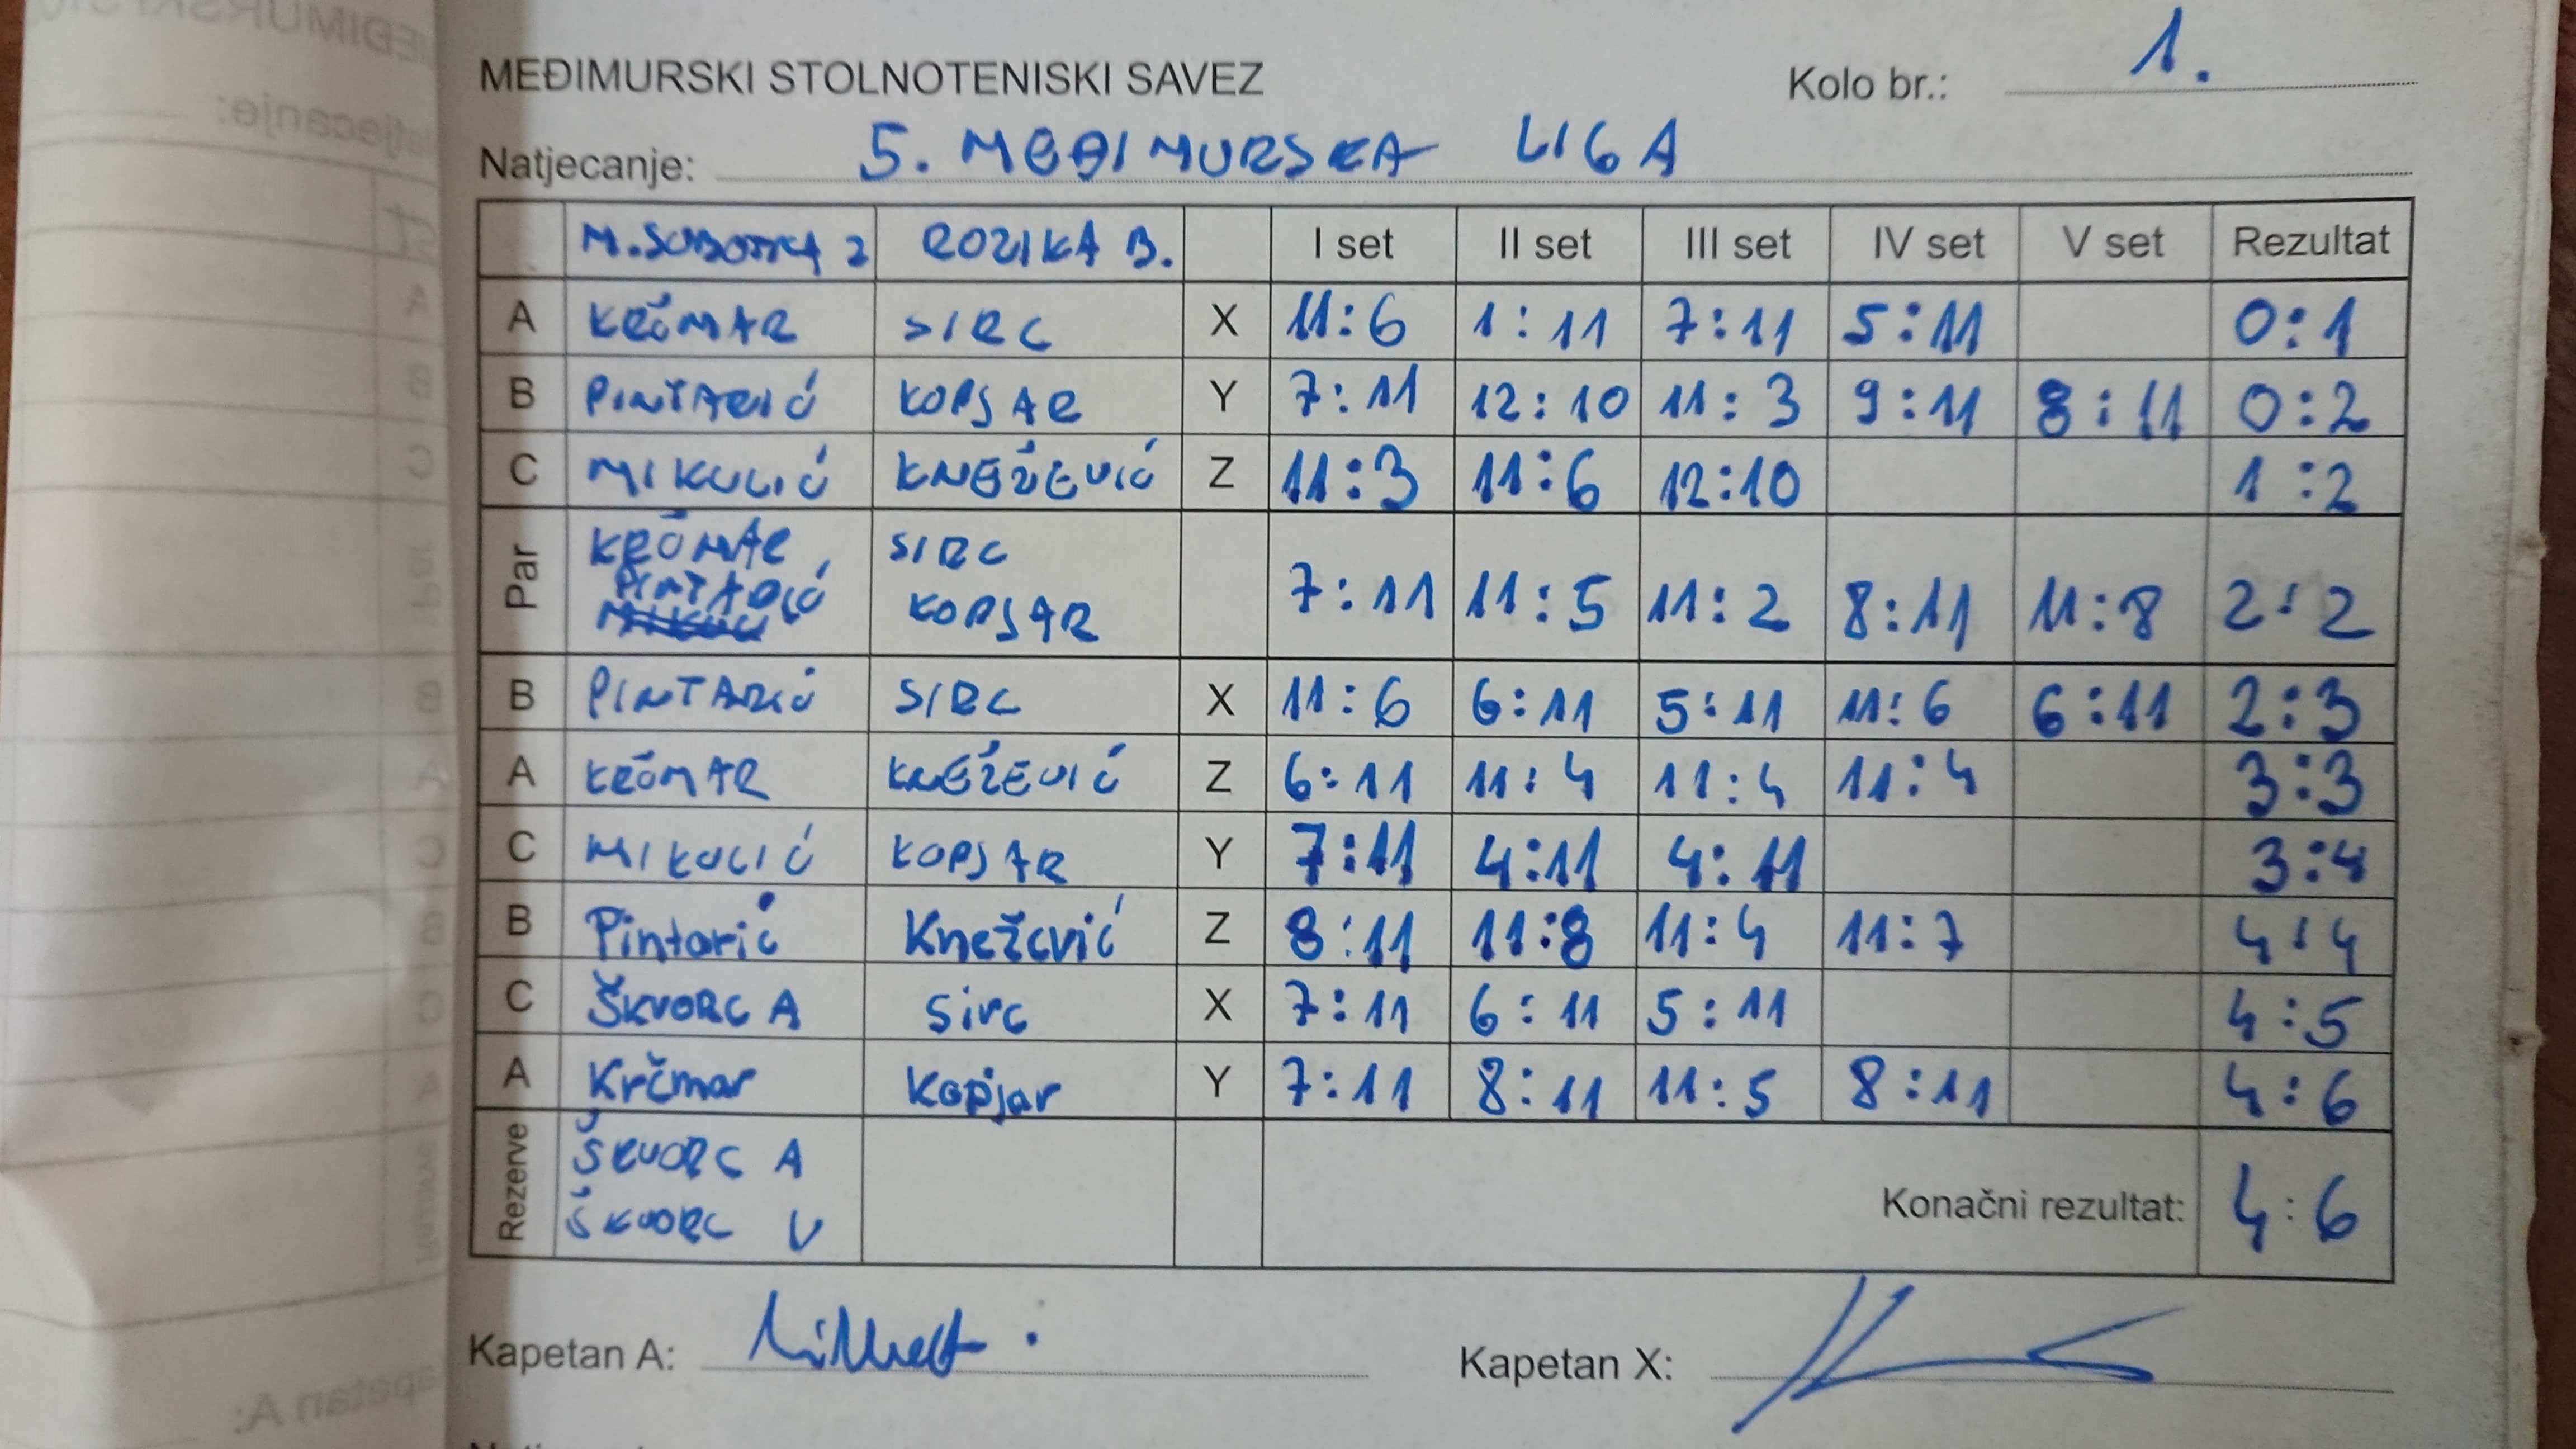 MEĐIMURSKI STOLNOTENISKI SAVEZ Kolo br.: 1.
Natjecanje: 5. MEĐIMURSKA LIGA
M.SUBOTICA 2 ROZIKA B. I set II set III set IV set V set Rezultat
A KRČMAR SIRC X 11:6 1:11 7:11 5:11 0:1
B PINTARIĆ KOPJAR Y 7:11 12:10 11:3 9:11 8:11 0:2
C MIKULIĆ KNEŽEVIĆ Z 11:3 11:6 12:10 1:2
Par KRČMAR PINTARIĆ SIRC KOPJAR 7:11 11:5 11:2 8:11 11:8 2:2
B PINTARIĆ SIRC X 11:6 6:11 5:11 11:6 6:11 2:3
A KRČMAR KNEŽEVIĆ Z 6:11 11:4 11:4 11:4 3:3
C MIKULIĆ KOPJAR Y 7:11 4:11 4:11 3:4
B Pintarić Knežević Z 8:11 11:8 11:4 11:7 4:4
C ŠKVORC A Sirc X 7:11 6:11 5:11 4:5
A Krčmar Kopjar Y 7:11 8:11 11:5 8:11 4:6
Rezerve ŠKVORC A
ŠKVORC V Konačni rezultat: 4:6
Kapetan A: Kapetan X: